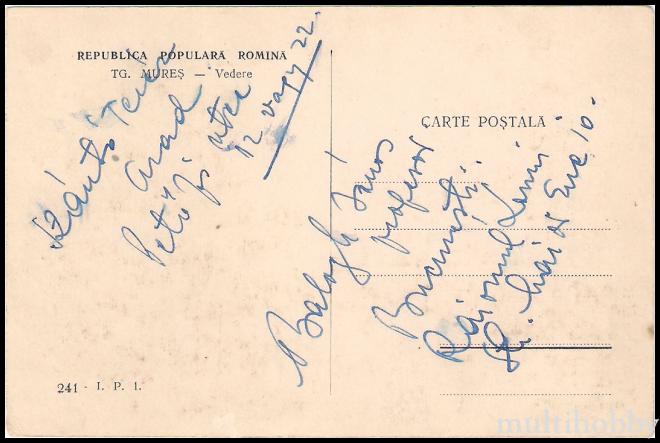 REPUBLICA POPULARĂ ROMINĂ
TG. MUREŞ — Vedere
Kántó Teréz
Arad
Petőfi utca
12 vagy 22.
CARTE POŞTALĂ
Balogh János
profesor
Bucureşti
Raionul Lenin
10.
241 - I. P. 1.
multihobby